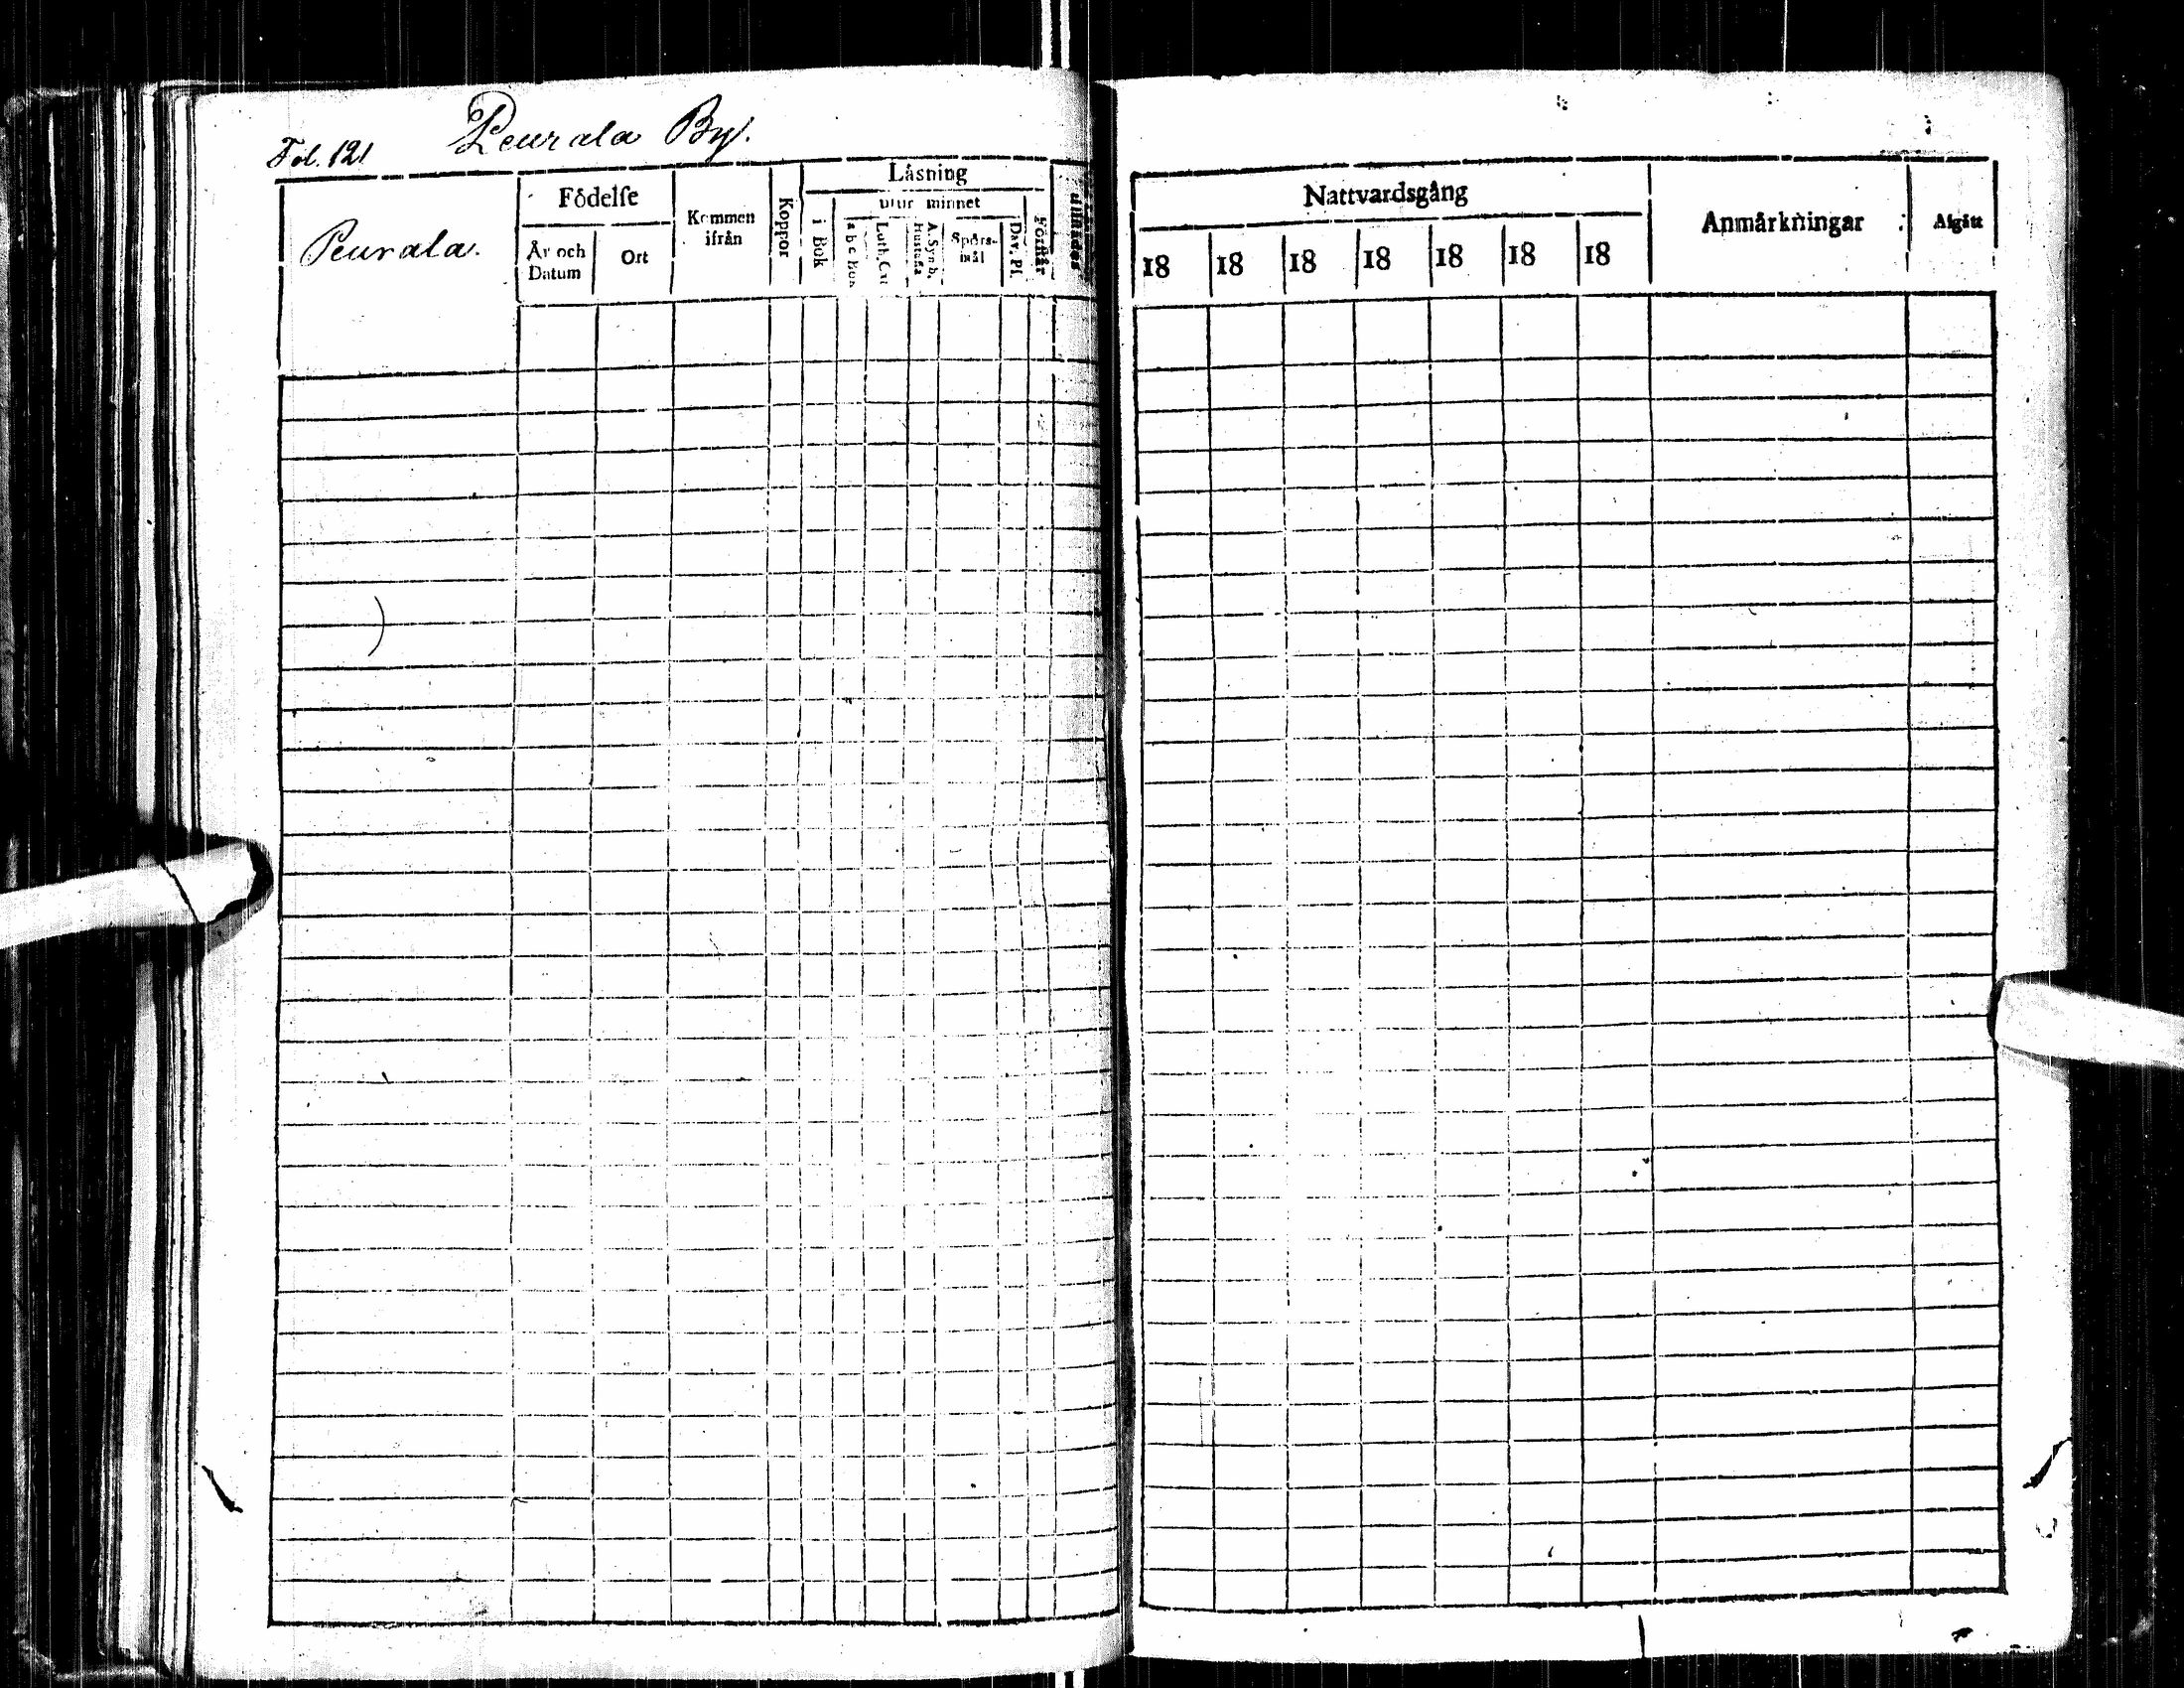 Fol. 121 Peurala By.
Peurala.
Födelse
År och
Datum
Ort
Kommen
ifrån
Koppor
Läsning
i Bok
utur minnet
a b c Bok
Luth. Cat
A. Symb.
Hustafla
Spörs-
mål
Dav. Ps.
Förstår
Nattvardsgång
18 18 18 18 18 18 18
Anmärkningar
Afgått